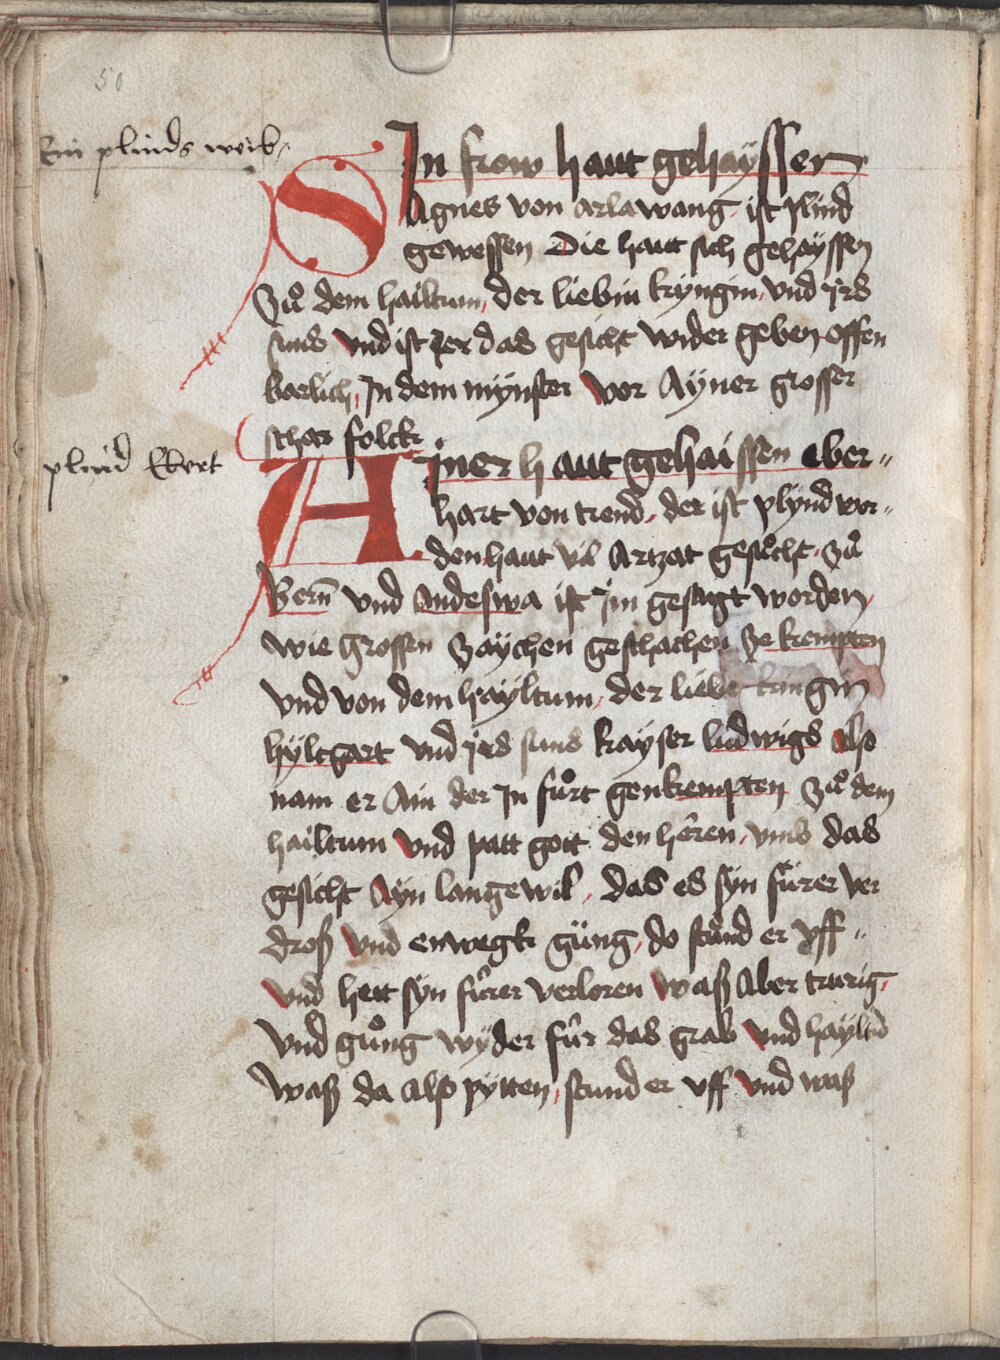 50
Ein plinds weib
SIn frow haut gehaysser
Agnes von arlawang ist plind
gewessen Die haut sich gehayssen
zuͦ dem hailtum, der liebin kyngin, vnd irs
suns vnd ist Jer das gesicht wider geben offen
barlich, Jn dem mynster vor Ayner grosser
schar folck
plind Ebert
AJner haut gehaissen eber„
hart von trend, der ist plynd wor„
den haut vil Artzat gesuͦcht, zuͦ
Bern vnd Andeswa ist im gesagt worden,
wie grossen zaychen geschachen ze kempten
vnd von dem hayltum, der liebe kungin
hyltgart vnd irs suns kayser ludwigs also
nam er Ain der Jn fuͦrt gen kempten zuͦ dem
hailtum vnd patt gott den heren, vmb das
gesicht Ayn lange wil, das es syn fürer ver
droß vnd enwegk güng, do stuͦnd er vff„
vnd hett syn fürer verloren waß Aber trurig,
vnd guͦng wyder für das grab vnd hayltū
waß da also pytten, stund er vff vnd waß